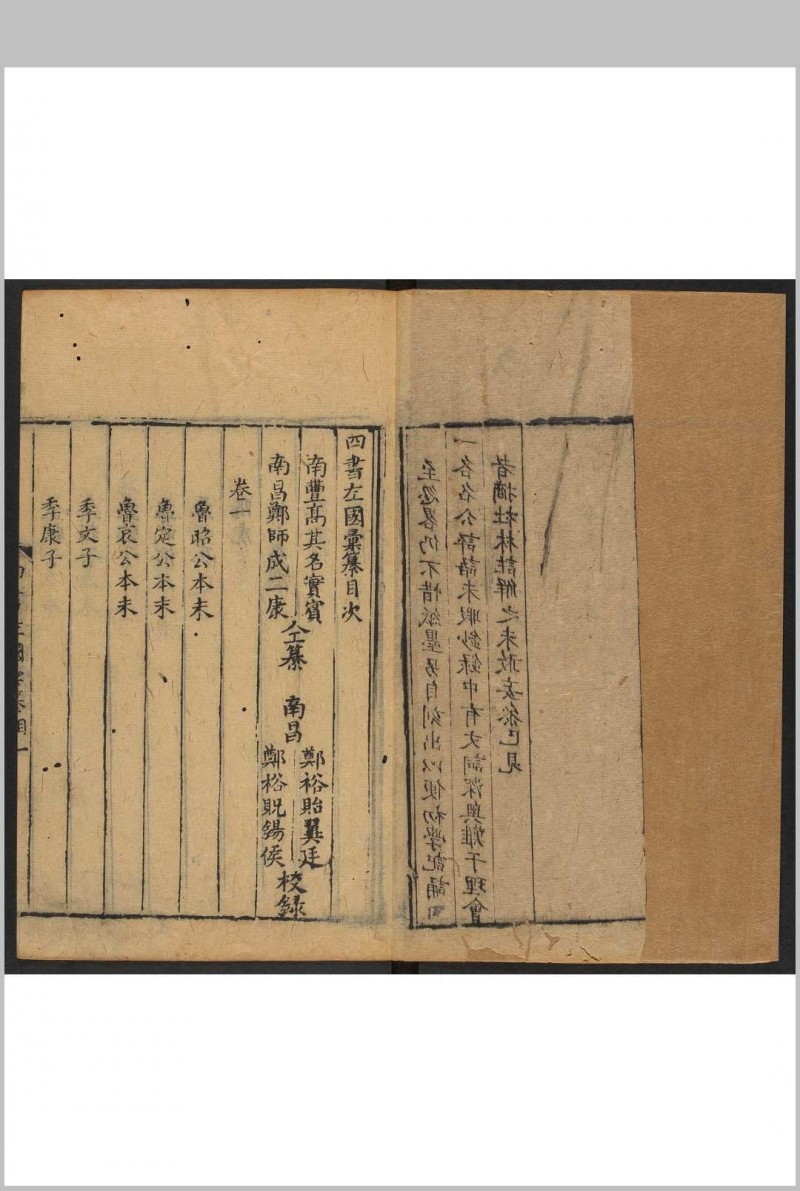 至忽畧仍不惜紙墨另自刻出以便初學記誦
一各名公評語未暇鈔錄中有文詞深奧難于理會
者摘杜林註解之未敢妄叅己見
四書左國彙纂目次
南豐高其名實賓
南昌鄭師成二康
仝纂
南昌
鄭裕貽翼廷
鄭裕貺錫侯
校錄
卷一
魯昭公本末
魯定公本末
魯哀公本末
季文子
季康子